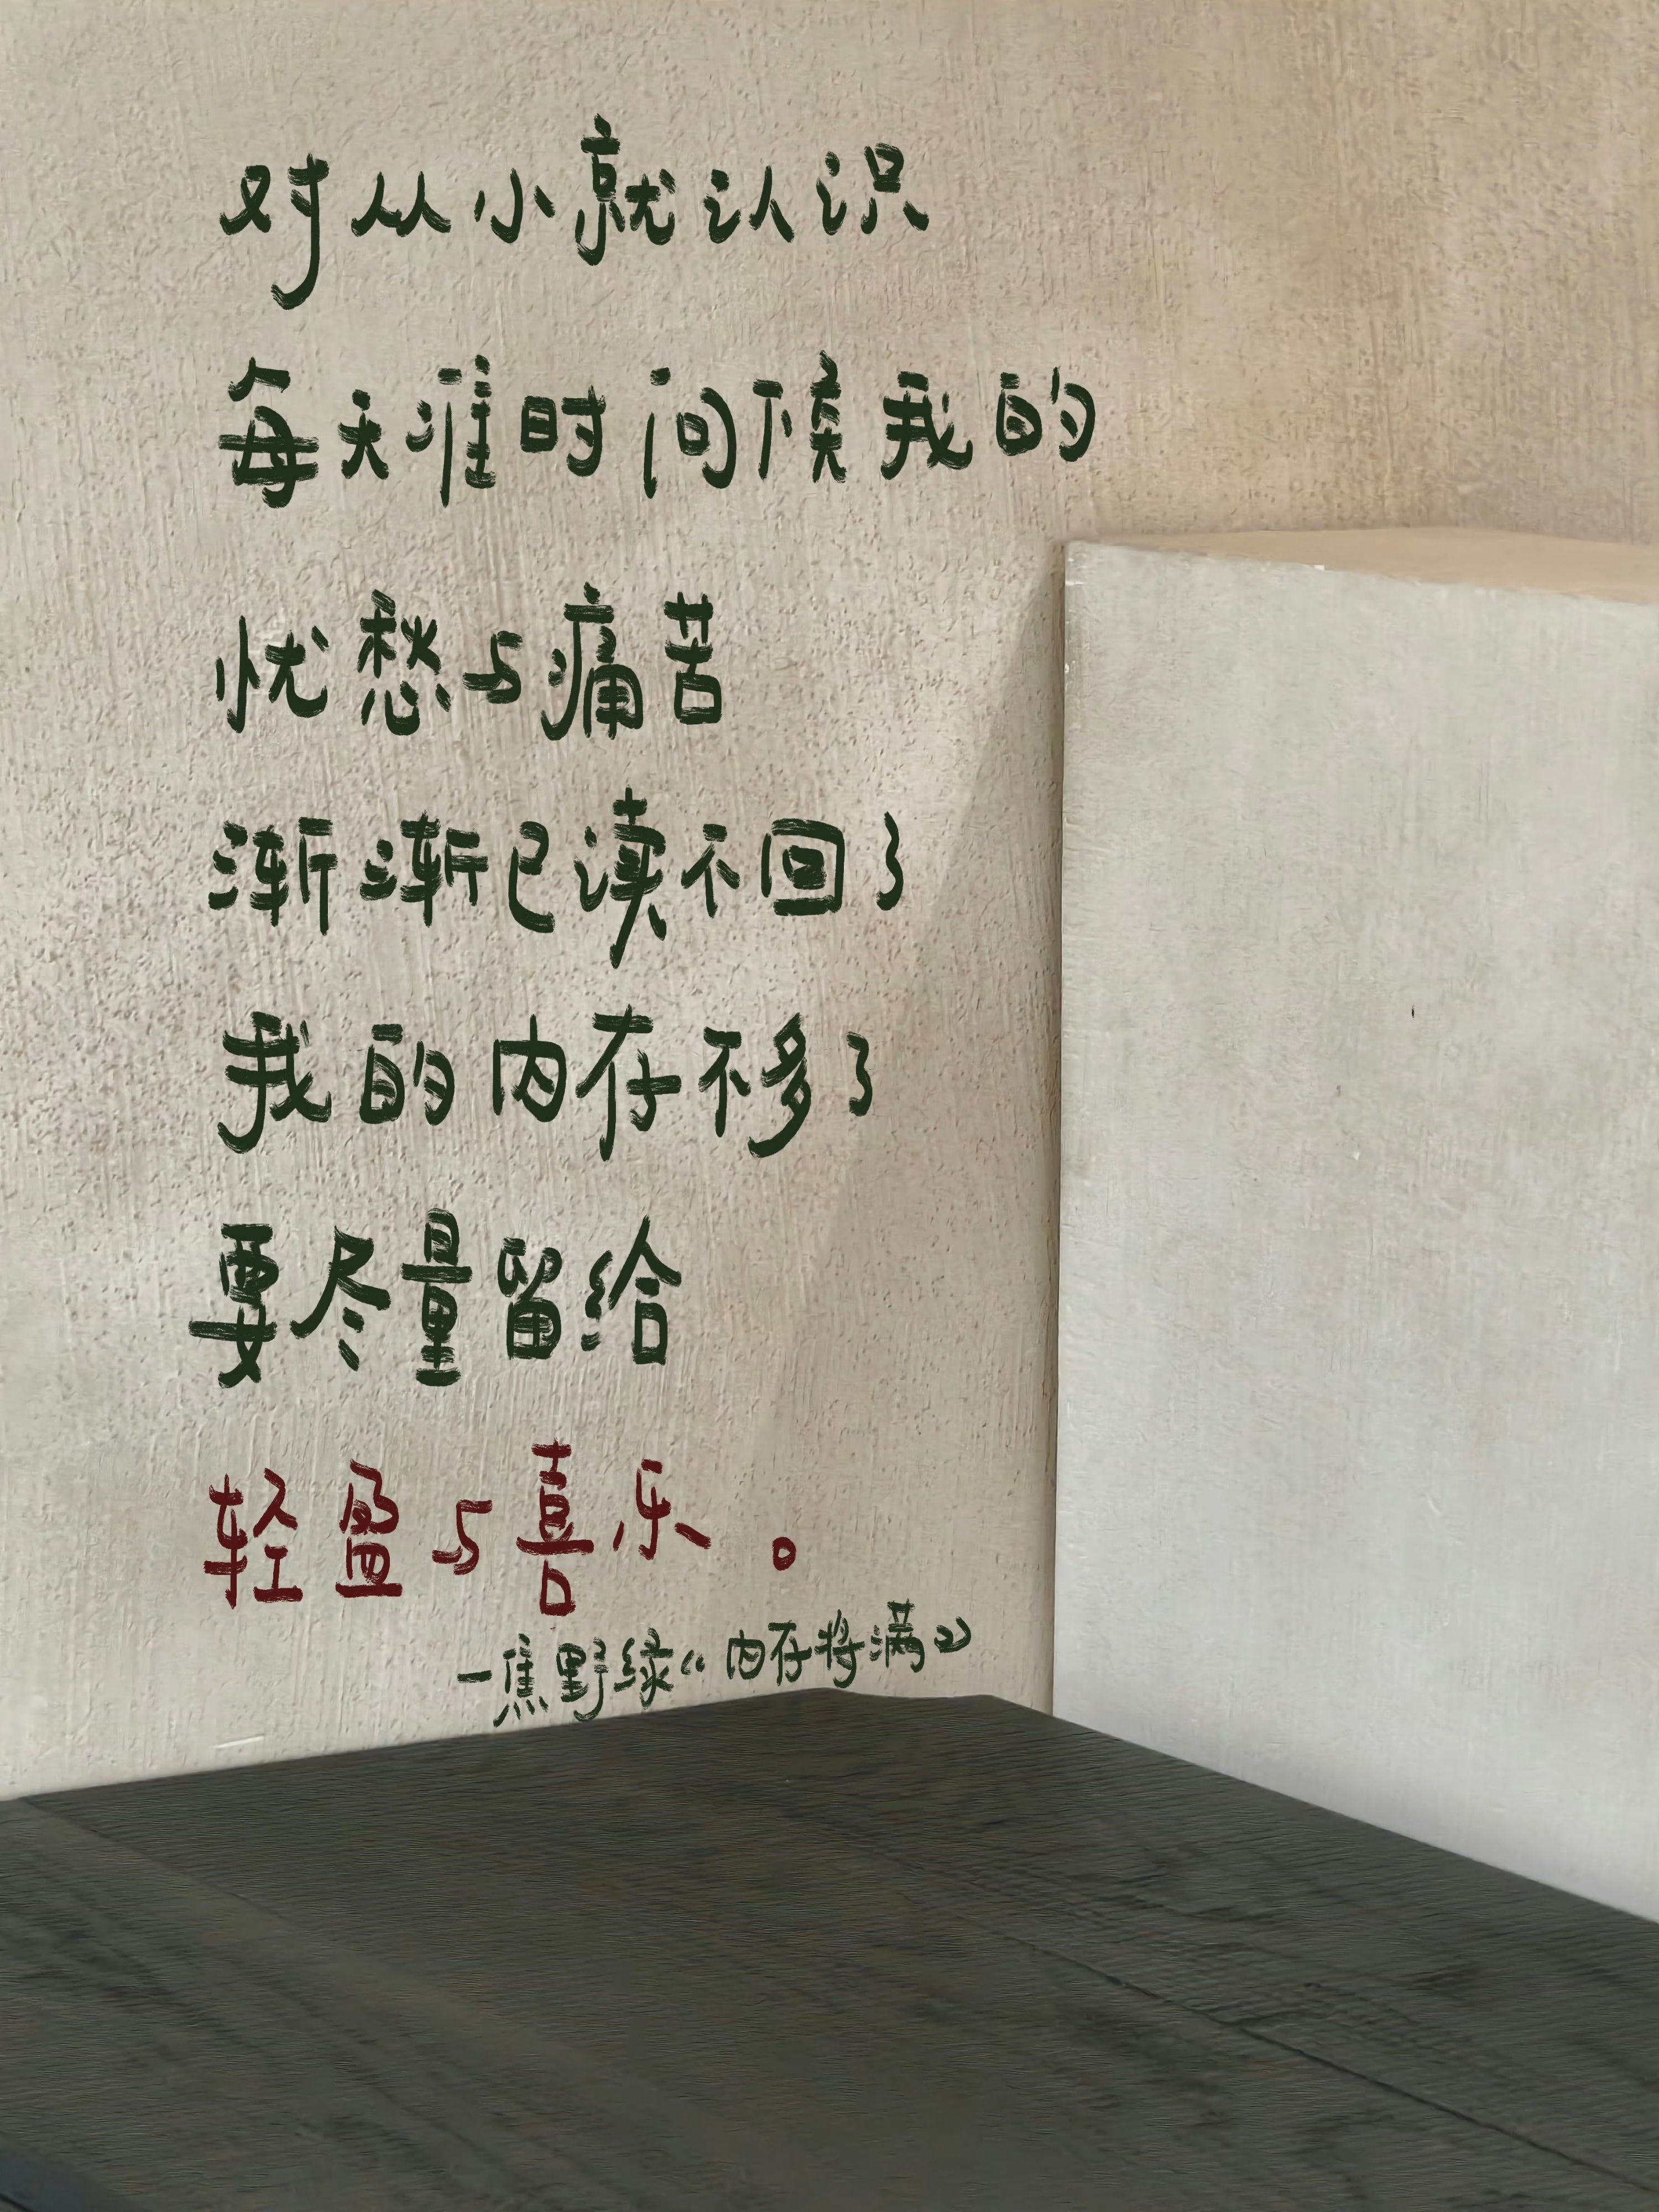 对从小就认识
每天准时问候我的
忧愁与痛苦
渐渐已读不回了
我的内存不多了
要尽量留给
轻盈与喜乐。
—焦野绿《内存将满》